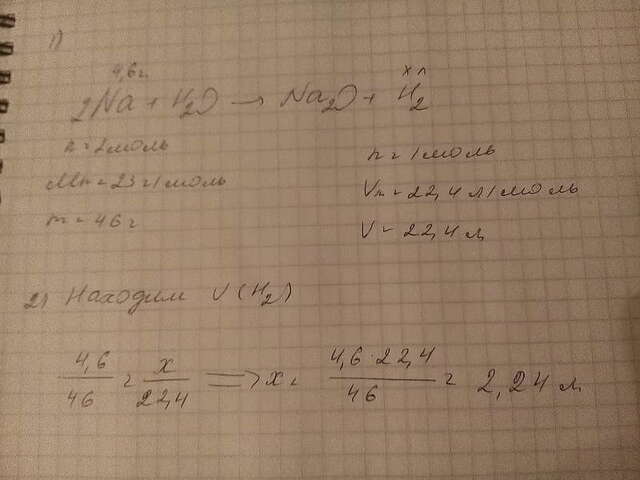 1)
4,6 г. x л
2Na + H2O → Na2O + H2
n = 2 моль
n = 1 моль
Mr = 23 г/моль
Vn = 22,4 л/моль
m = 46 г
V = 22,4 л
2) Находим V(H2)
4,6/46 = x/22,4 => x = 4,6·22,4/46 = 2,24 л